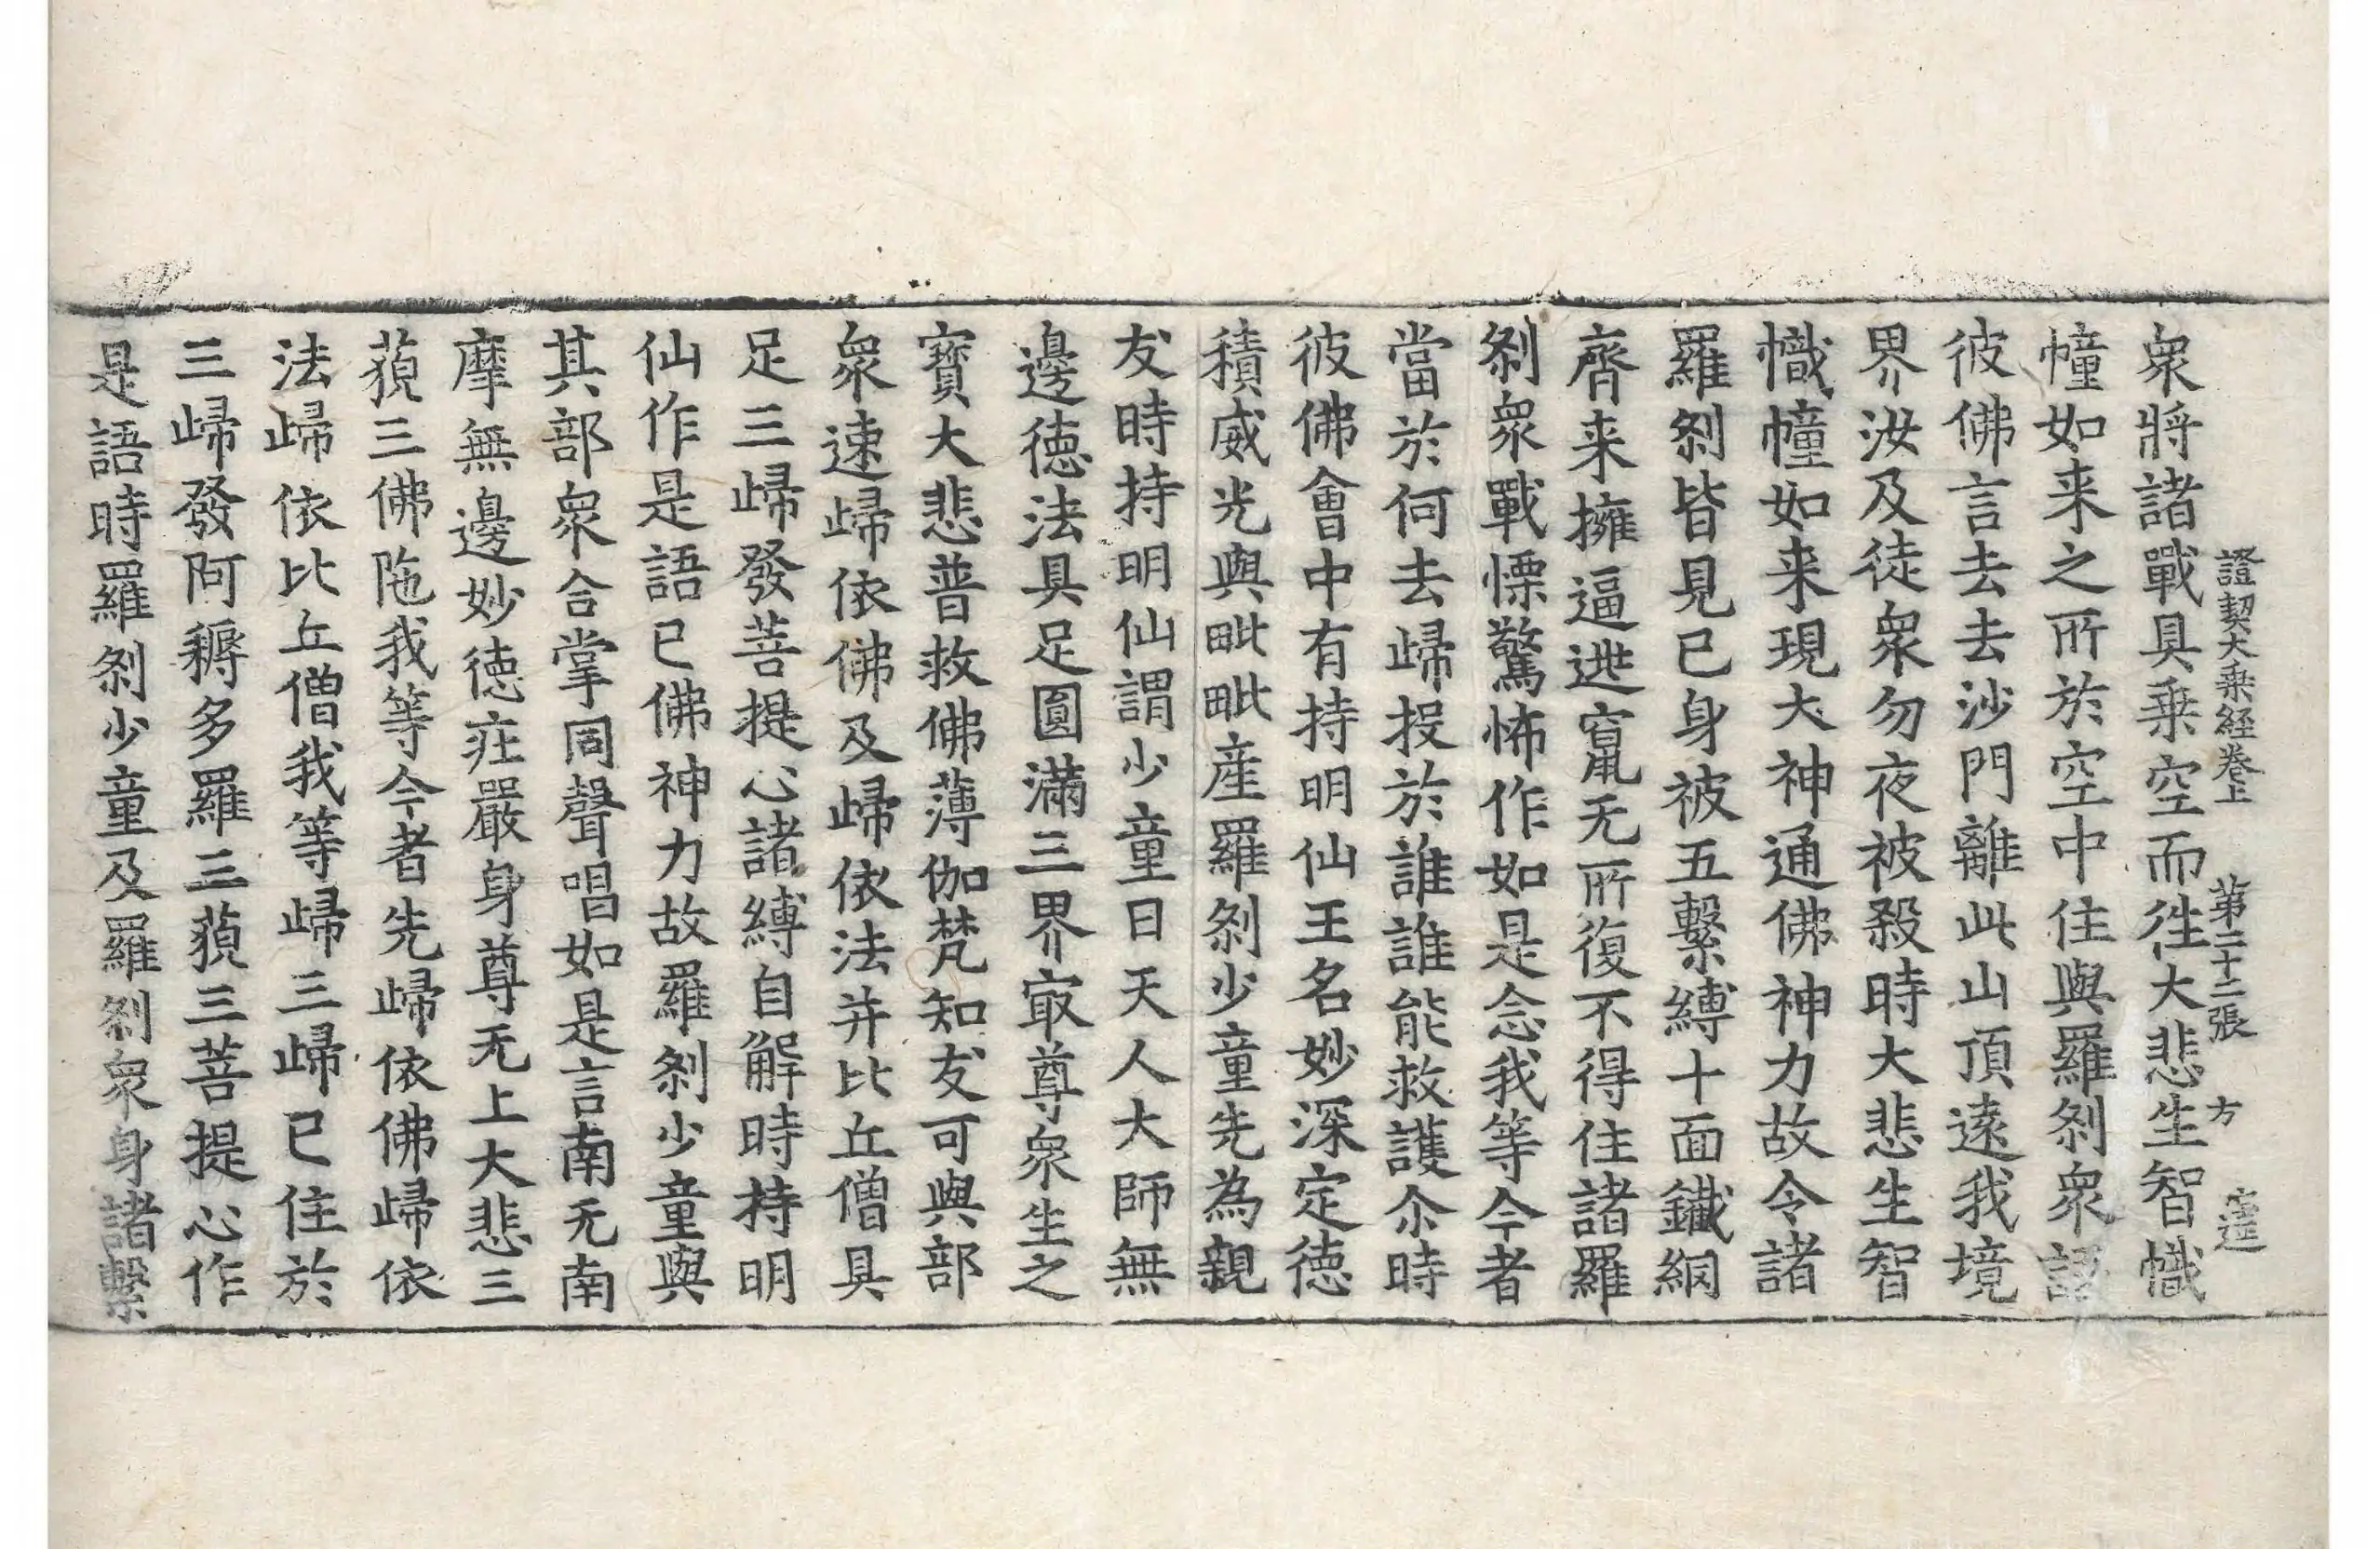 證契大乗経卷上　第二十二張　方
衆將諸戰具乗空而徃大悲生智幟
幢如来之所於空中住與羅刹衆語
彼佛言去去沙門離此山頂遠我境
界汝及徒衆勿夜被殺時大悲生智
幟幢如来現大神通佛神力故令諸
羅刹皆見已身被五繫縛十面鐵網
齊来擁逼逃竄无所復不得住諸羅
刹衆戰慄驚怖作如是念我等今者
當於何去歸投於誰誰能救護尒時
彼佛會中有持明仙王名妙深定徳
積威光與毗毗産羅刹少童先為親
友時持明仙謂少童曰天人大師無
邊徳法具足圓滿三界㝡尊衆生之
寳大悲普救佛薄伽梵知友可與部
衆速歸依佛及歸依法并比丘僧具
足三歸發菩提心諸縛自解時持明
仙作是語已佛神力故羅刹少童與
其部衆合掌同聲唱如是言南无南
摩無邊妙徳莊嚴身尊无上大悲三
藐三佛陁我等今者先歸依佛歸依
法歸依比丘僧我等歸三歸已住於
三歸發阿耨多羅三藐三菩提心作
是語時羅刹少童及羅刹衆身諸繫